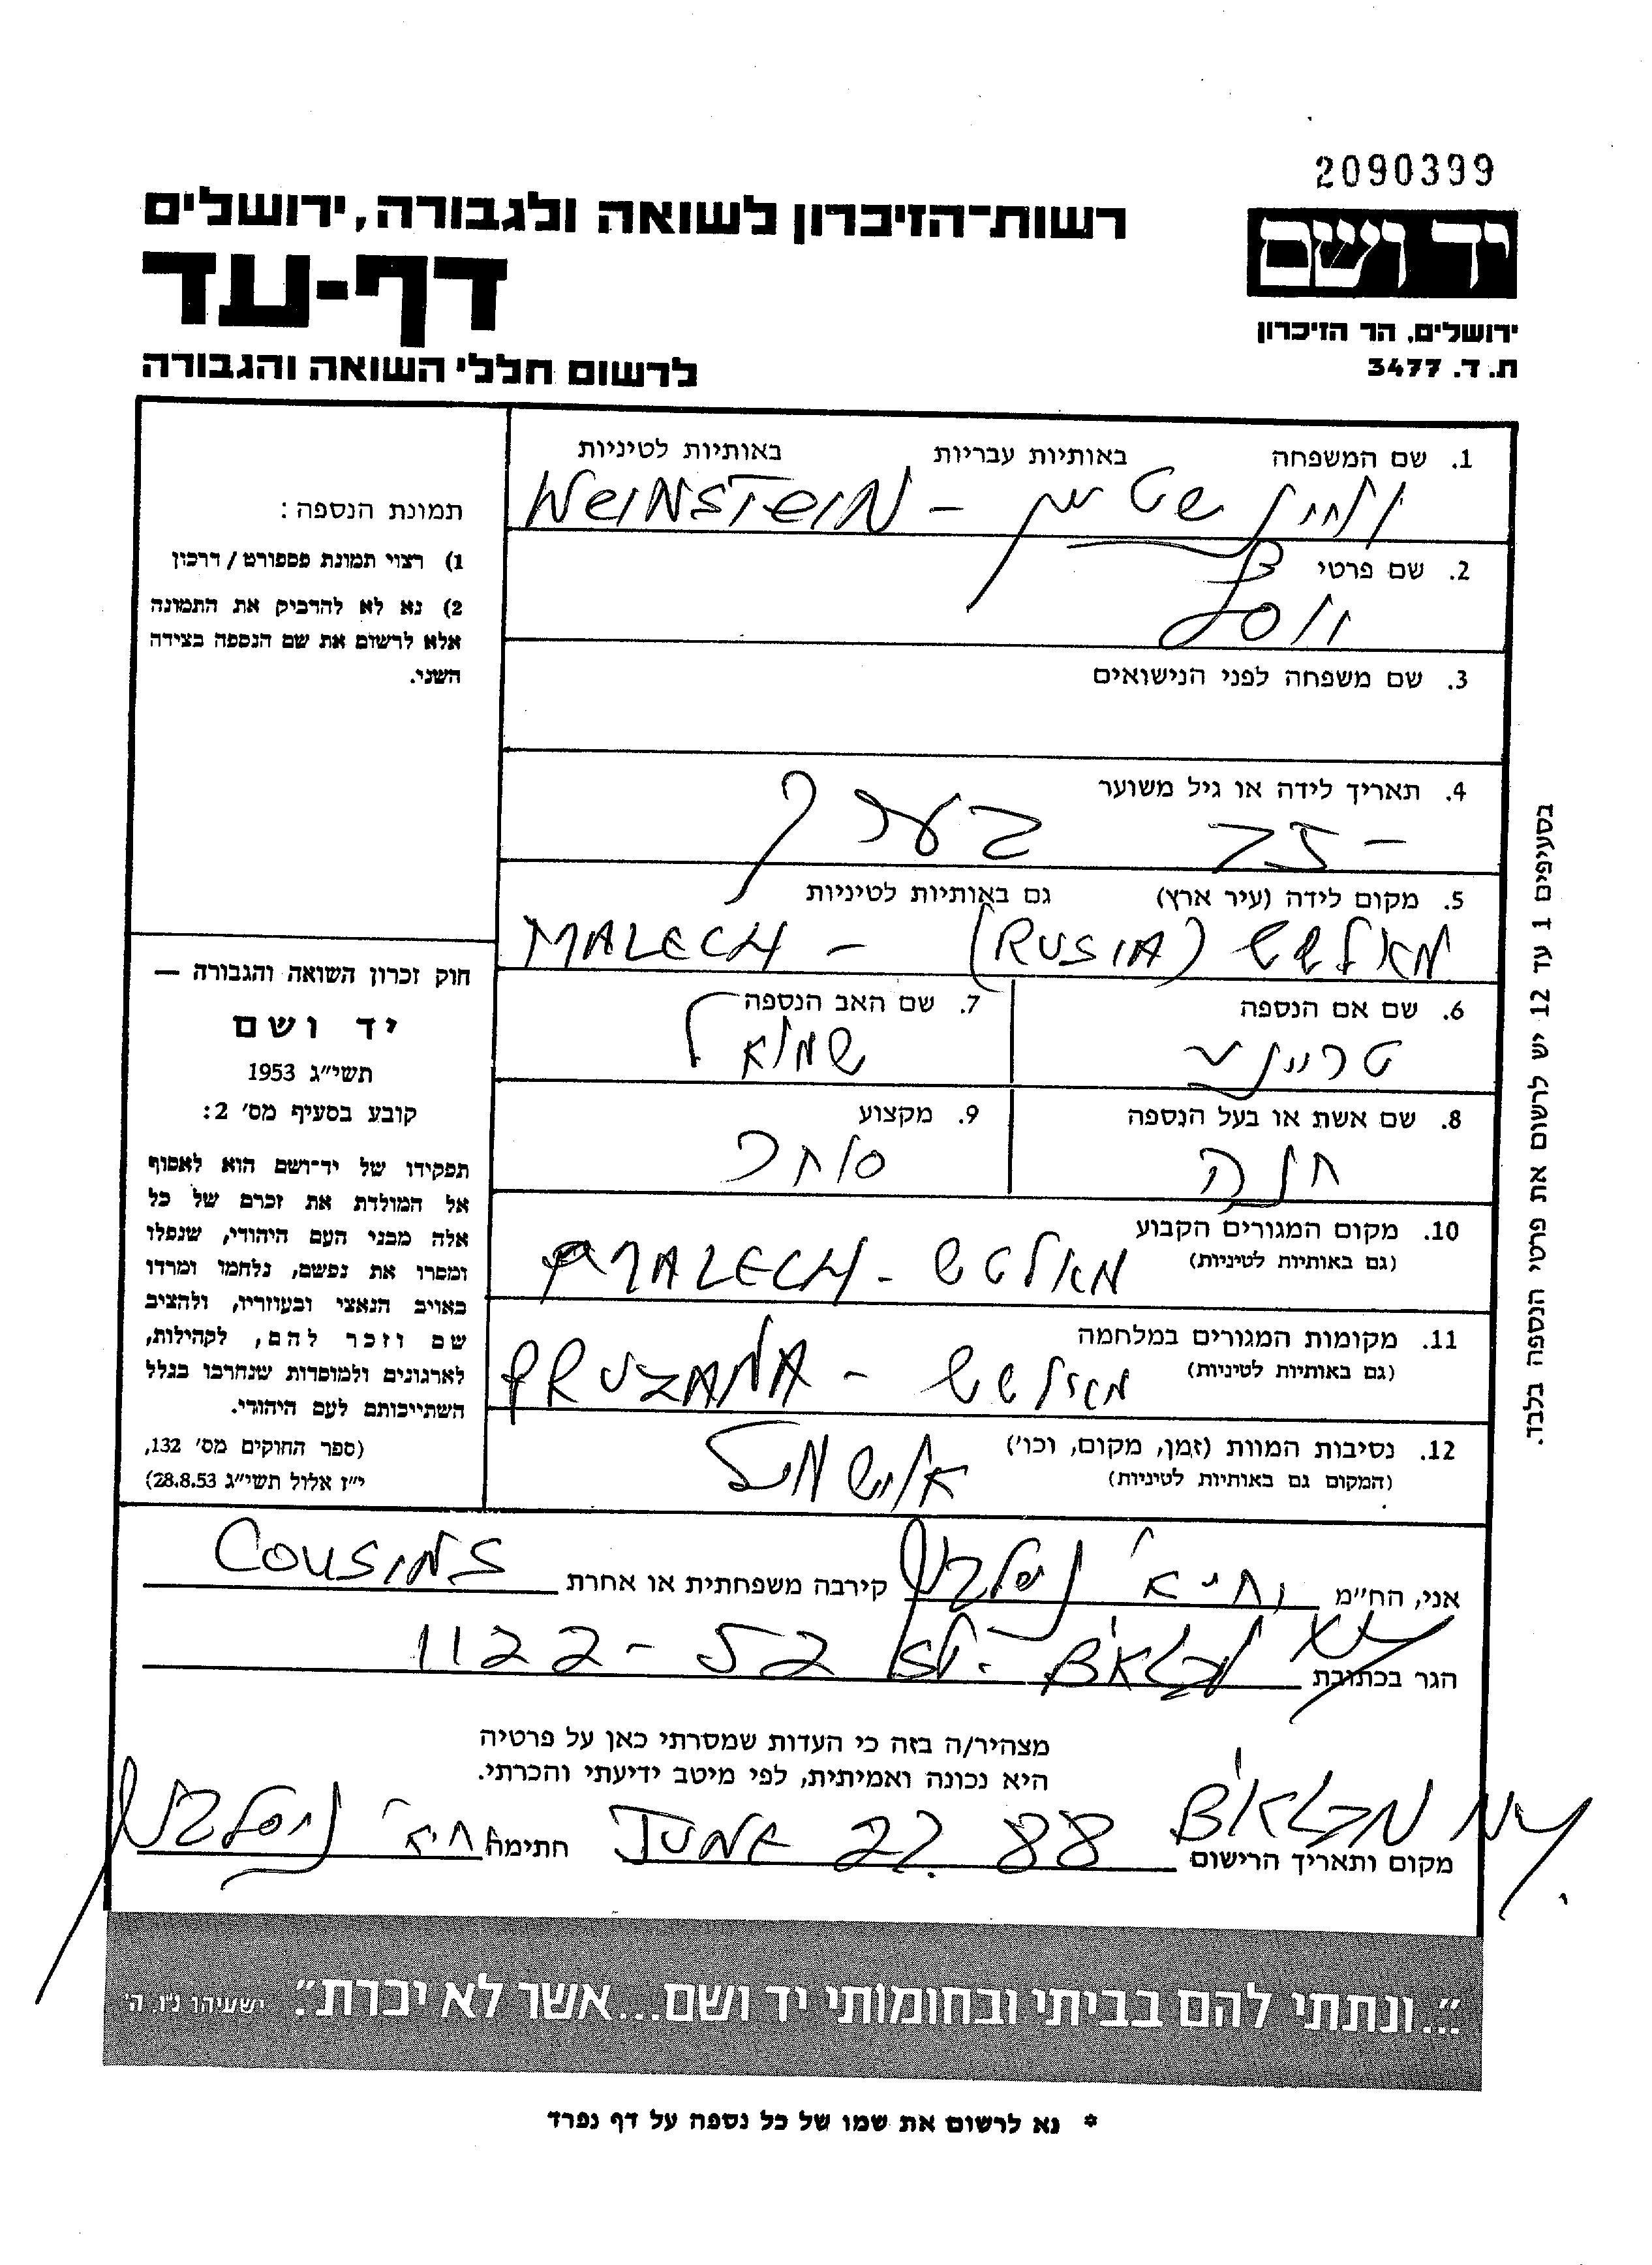 2090399
יד ושם
ירושלים, הר הזיכרון
ת. ד. 3477
רשות־הזיכרון לשואה ולגבורה, ירושלים
דף-עד
לרשום חללי השואה והגבורה
תמונת הנספה:
1) רצוי תמונת פספורט / דרכון
2) נא לא להדביק את התמונה
אלא לרשום את שם הנספה בצידה
השני.
חוק זכרון השואה והגבורה —
יד ושם
תשי״ג 1953
קובע בסעיף מס׳ 2:
תפקידו של יד־ושם הוא לאסוף
אל המולדת את זכרם של כל
אלה מבני העם היהודי, שנפלו
ומסרו את נפשם, נלחמו ומרדו
באויב הנאצי ובעוזריו, ולהציב
שם וזכר להם, לקהילות,
לארגונים ולמוסדות שנחרבו בגלל
השתייכותם לעם היהודי.
(ספר החוקים מס׳ 132,
י״ז אלול תשי״ג 28.8.53)
1. שם המשפחה באותיות עבריות באותיות לטיניות
וויינשטיין - WEINSTEIN
2. שם פרטי
יוסף
3. שם משפחה לפני הנישואים
4. תאריך לידה או גיל משוער
- בערך
5. מקום לידה (עיר ארץ) גם באותיות לטיניות
מאלטש (RUSIA) - MALECH
6. שם אם הנספה
7. שם האב הנספה
שמואל
8. שם אשת או בעל הנספה
חנה
9. מקצוע
סוחר
10. מקום המגורים הקבוע
(גם באותיות לטיניות)
מאלטש - MALECH
11. מקומות המגורים במלחמה
(גם באותיות לטיניות)
מאלטש - PRUZANA
12. נסיבות המוות (זמן, מקום, וכו׳)
(המקום גם באותיות לטיניות)
אוישוויץ
בסעיפים 1 עד 12 יש לרשום את פרטי הנספה בלבד.
אני, הח״מ חיא קירבה משפחתית או אחרת COUSINS
הגר בכתובת 1122 - 52
מצהיר/ה בזה כי העדות שמסרתי כאן על פרטיה
היא נכונה ואמיתית, לפי מיטב ידיעתי והכרתי.
מקום ותאריך הרישום JUNE 22. 88 חתימה חיא
״...ונתתי להם בביתי ובחומותי יד ושם...אשר לא יכרת״. ישעיהו נ״ו. ה׳
* נא לרשום את שמו של כל נספה על דף נפרד